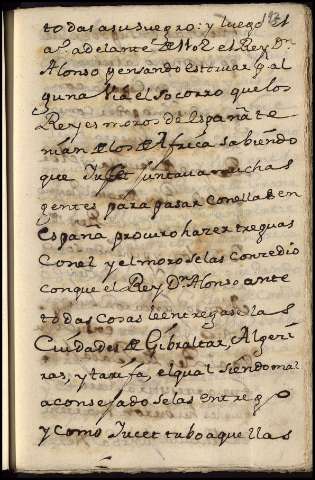 todas a su suegro: y luego el
a.º adelante de 1102 el Rey D.n
Alonso pensando estorvar p.r al
guna via el socorro que los
Reyes moros de España te
nian de los de Africa sabiendo
que Jucef juntava muchas
gentes para pasar con ellas en
España procuro hazer treguas
con el y el moro se las concedio
con que el Rey D.n Alonso ante
todas cosas le entregase las
Ciudades de Gibraltar, Algeci
ras, y tarifa, el qual siendo mal
aconsejado se las entrego
y como Jucef tubo aquellas